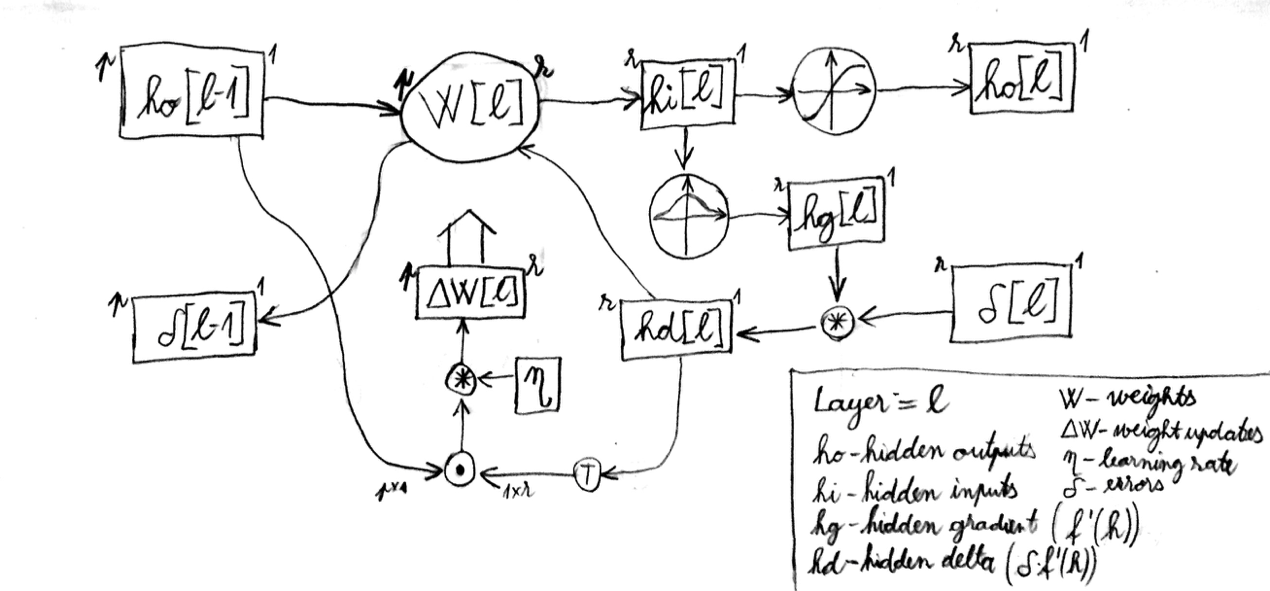 p ho[l-1] 1
p W[l] r
r hi[l] 1
r ho[l] 1
r hg[l] 1
p δ[l-1] 1
p ΔW[l] r
r hd[l] 1
*
r δ[l] 1
* η
p×1 • 1×r T
Layer = l
ho-hidden outputs
hi-hidden inputs
hg-hidden gradient (f'(h))
hd-hidden delta (δ·f'(h))
W- weights
ΔW- weight updates
η- learning rate
δ- errors